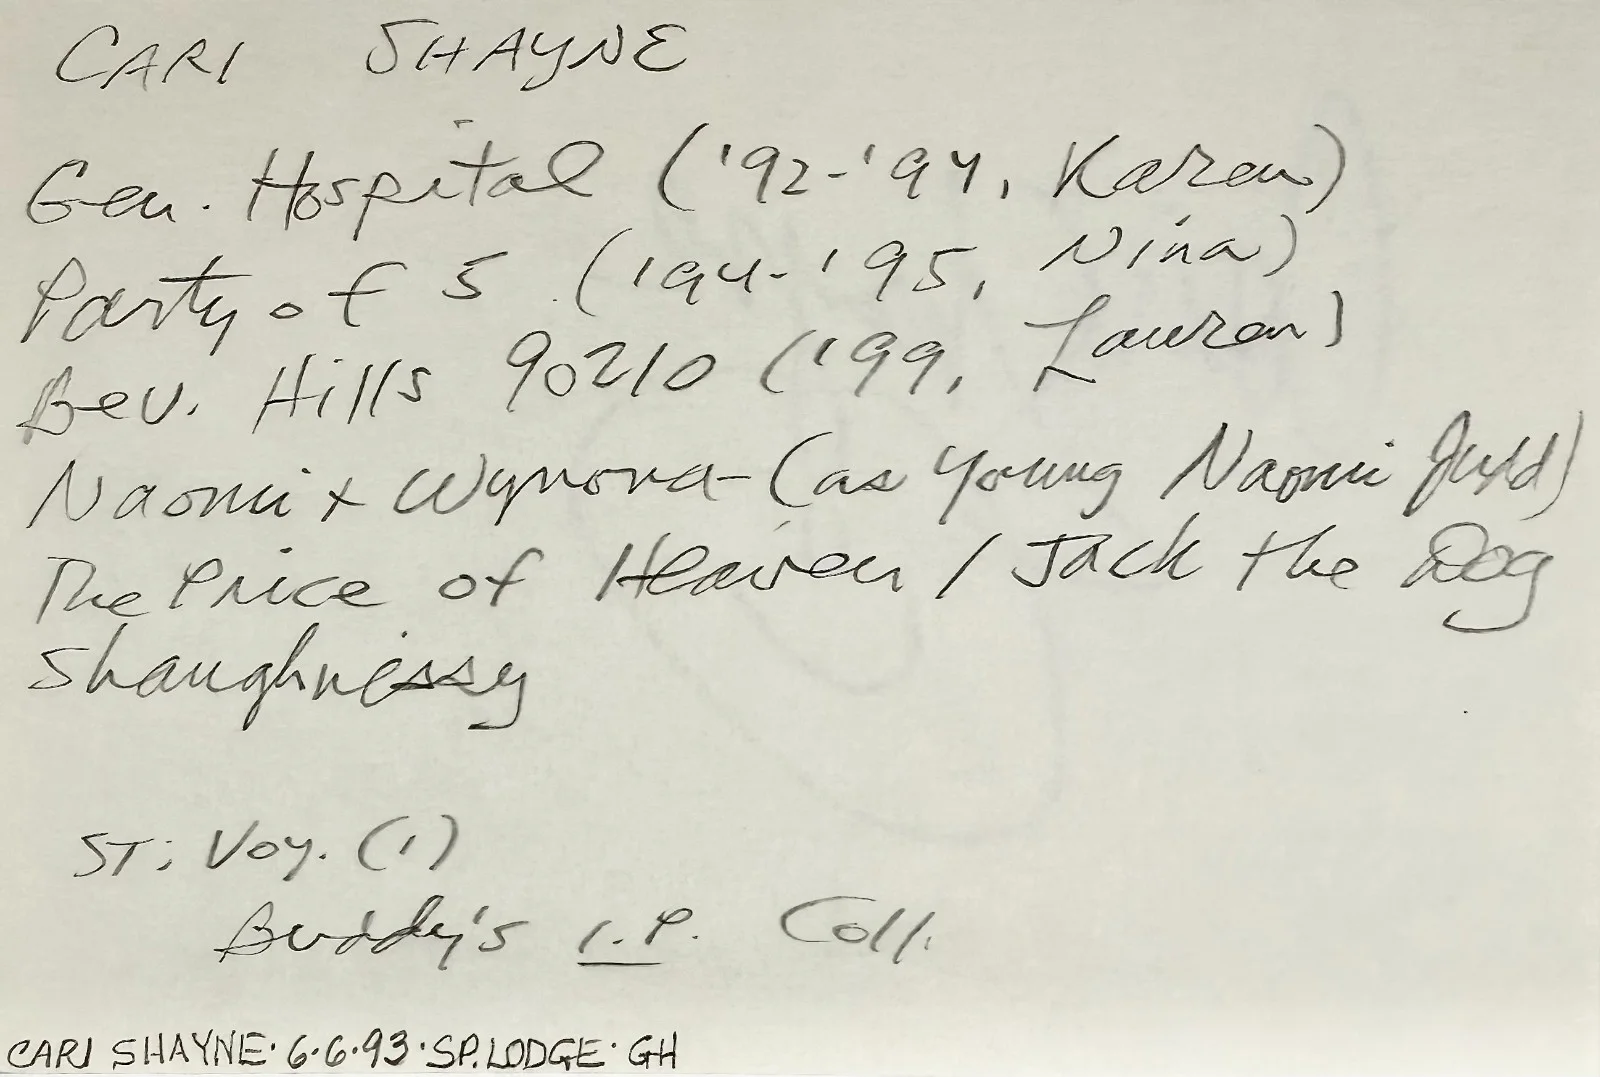 CARI SHAYNE
Gen. Hospital ('92-'94, Karen)
Party of 5 ('94-'95, Nina)
Bev. Hills 90210 ('99, Lauren)
Naomi + Wynona - (as Young Naomi Judd)
The Price of Heaven / Jack the Dog
Shaughnessy
ST: Voy. (1)
Buddy's I.P. Coll.
CARI SHAYNE · 6·6·93 · SP.LODGE · GH